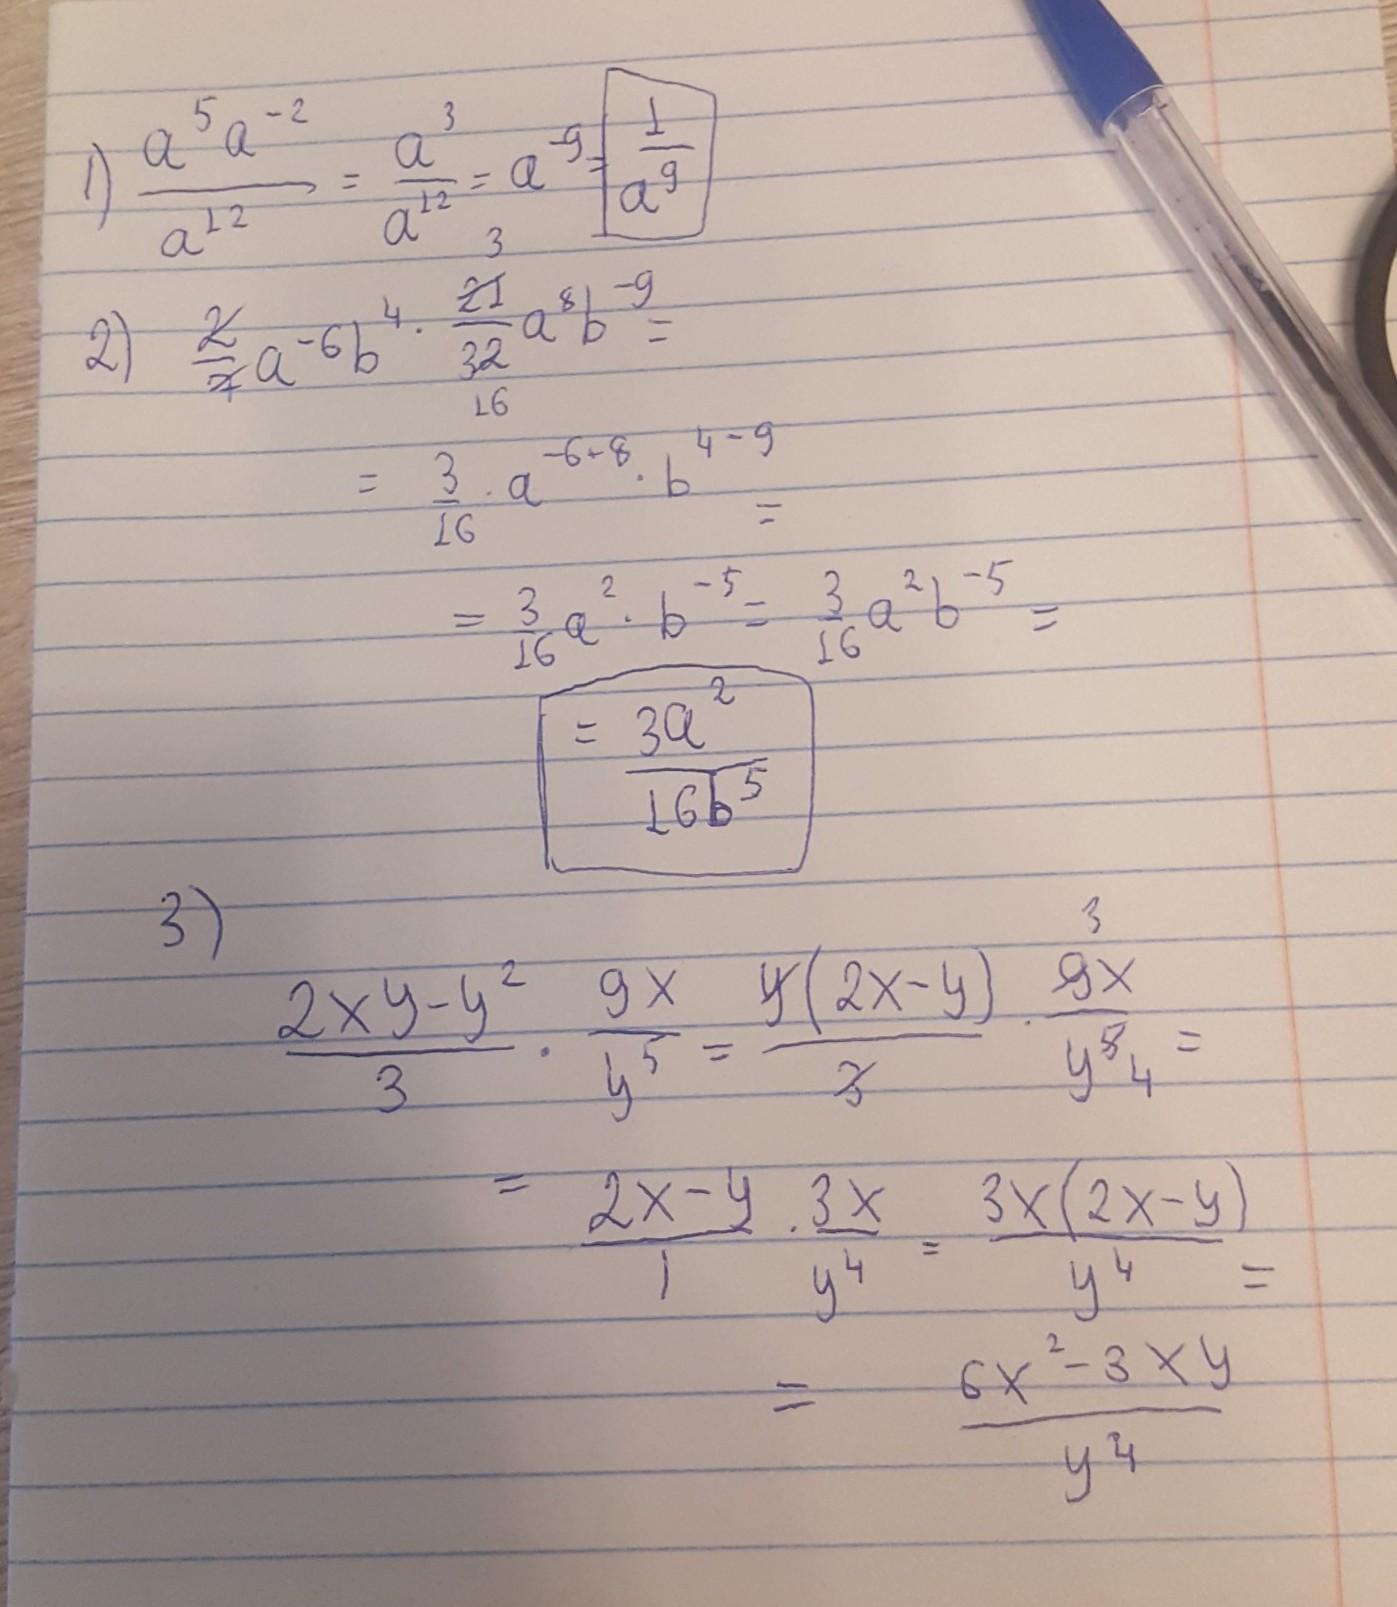 1) a^5 a^-2 / a^12 = a^3 / a^12 = a^-9 = 1 / a^9
2) 2/7 a^-6 b^4 · 21/32 a^8 b^-9 =
3
16
= 3/16 · a^-6+8 · b^4-9 =
= 3/16 a^2 · b^-5 = 3/16 a^2 b^-5 =
= 3a^2 / 16b^5
3)
3
2xy-y^2 / 3 · 9x / y^5 = y(2x-y) / 3 · 9x / y^5 =
4
= 2x-y / 1 · 3x / y^4 = 3x(2x-y) / y^4 =
= 6x^2-3xy / y^4